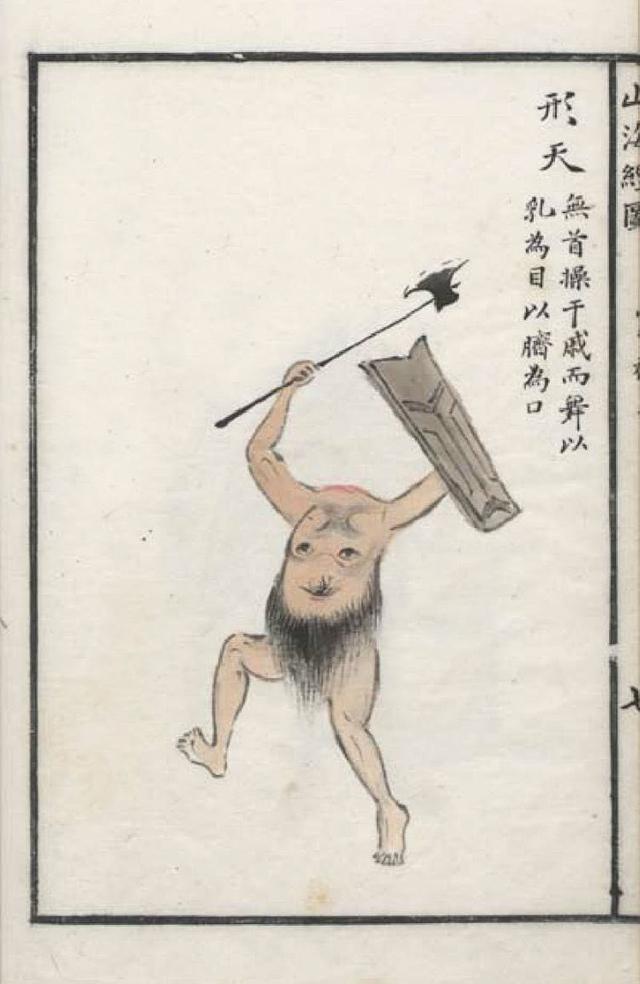 山海經圖
形天
無首操干戚而舞以
乳為目以臍為口